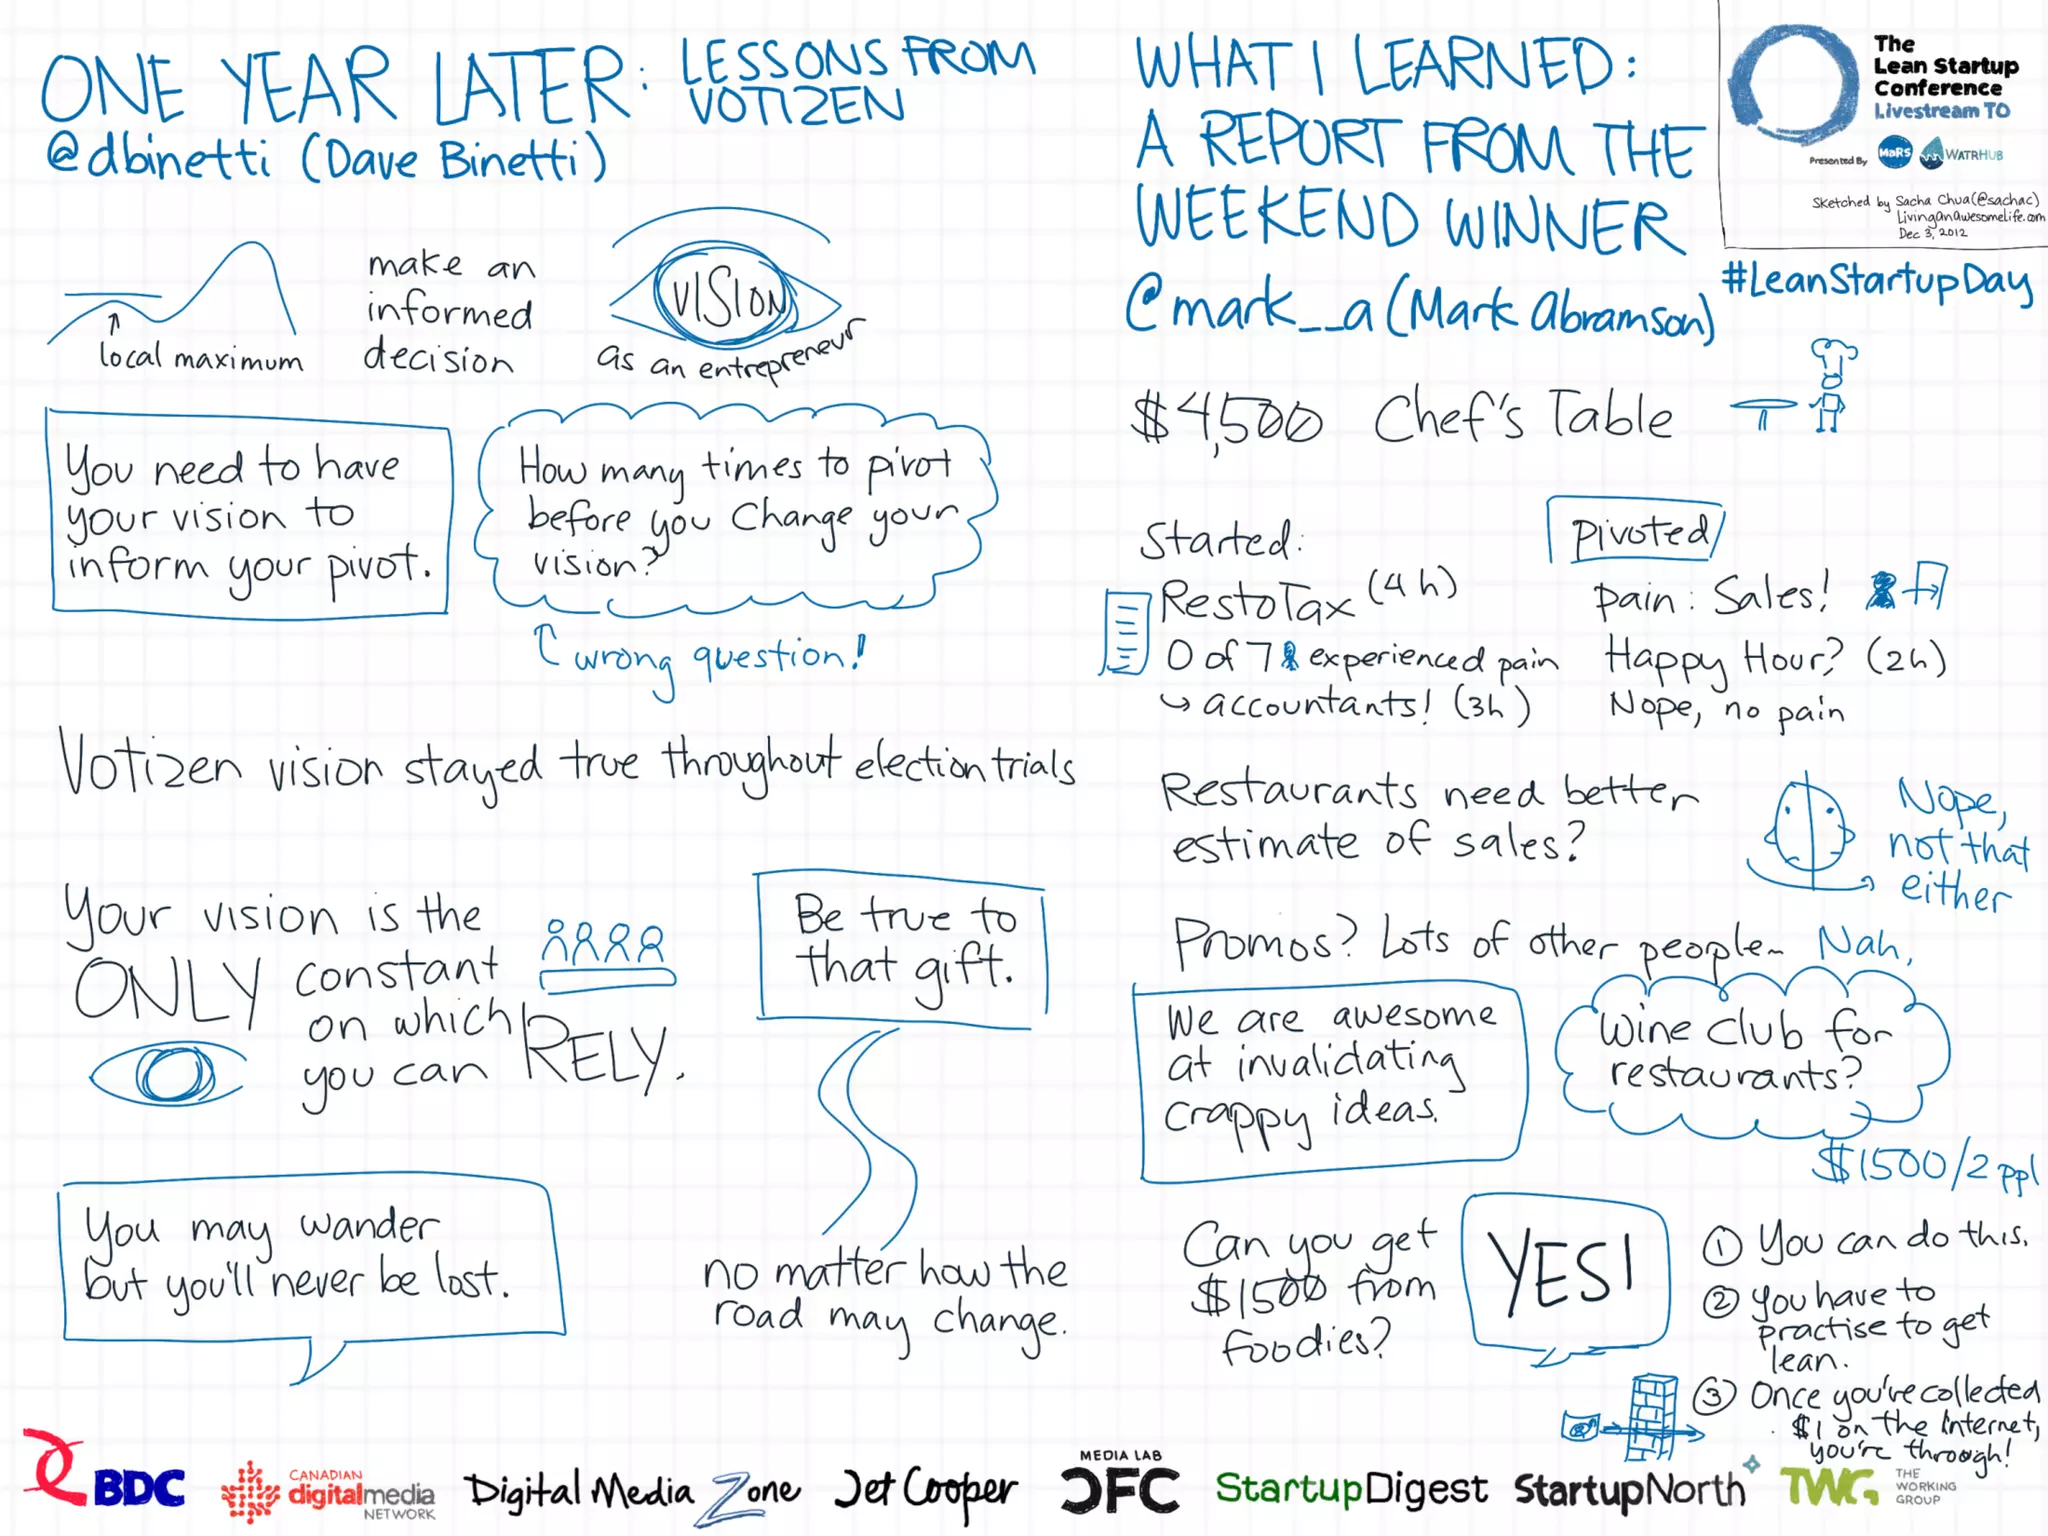 ONE YEAR LATER: LESSONS FROM
VOTIZEN
@dbinetti (Dave Binetti)
local maximum
make an
informed
decision
VISION
as an entrepreneur
You need to have
your vision to
inform your pivot.
How many times to pivot
before you change your
vision?
wrong question!
Votizen vision stayed true throughout election trials
Your vision is the
ONLY constant
on which
you can RELY.
Be true to
that gift.
You may wander
but you'll never be lost.
no matter how the
road may change.
WHAT I LEARNED:
A REPORT FROM THE
WEEKEND WINNER
@mark__a (Mark Abramson)
The
Lean Startup
Conference
Livestream TO
Presented By MaRS WATRHUB
Sketched by Sacha Chua (@sachac)
LivingAnAwesomeLife.com
Dec 3, 2012
#LeanStartupDay
$4,500 Chef's Table
Started:
RestoTax (4h)
0 of 7 experienced pain
↳ accountants! (3h)
Pivoted
pain: Sales!
Happy Hour? (2h)
Nope, no pain
Restaurants need better
estimate of sales?
Nope,
not that
either
Promos? Lots of other people~ Nah.
We are awesome
at invalidating
crappy ideas.
Wine club for
restaurants?
$1500/2 ppl
Can you get
$1500 from
foodies?
YES!
① You can do this.
② You have to
practise to get
lean.
③ Once you've collected
$1 on the Internet,
you're through!
BDC
CANADIAN
digitalmedia
NETWORK
Digital Media Zone
Jet Cooper
MEDIA LAB
CFC
StartupDigest
StartupNorth
TWG
THE
WORKING
GROUP